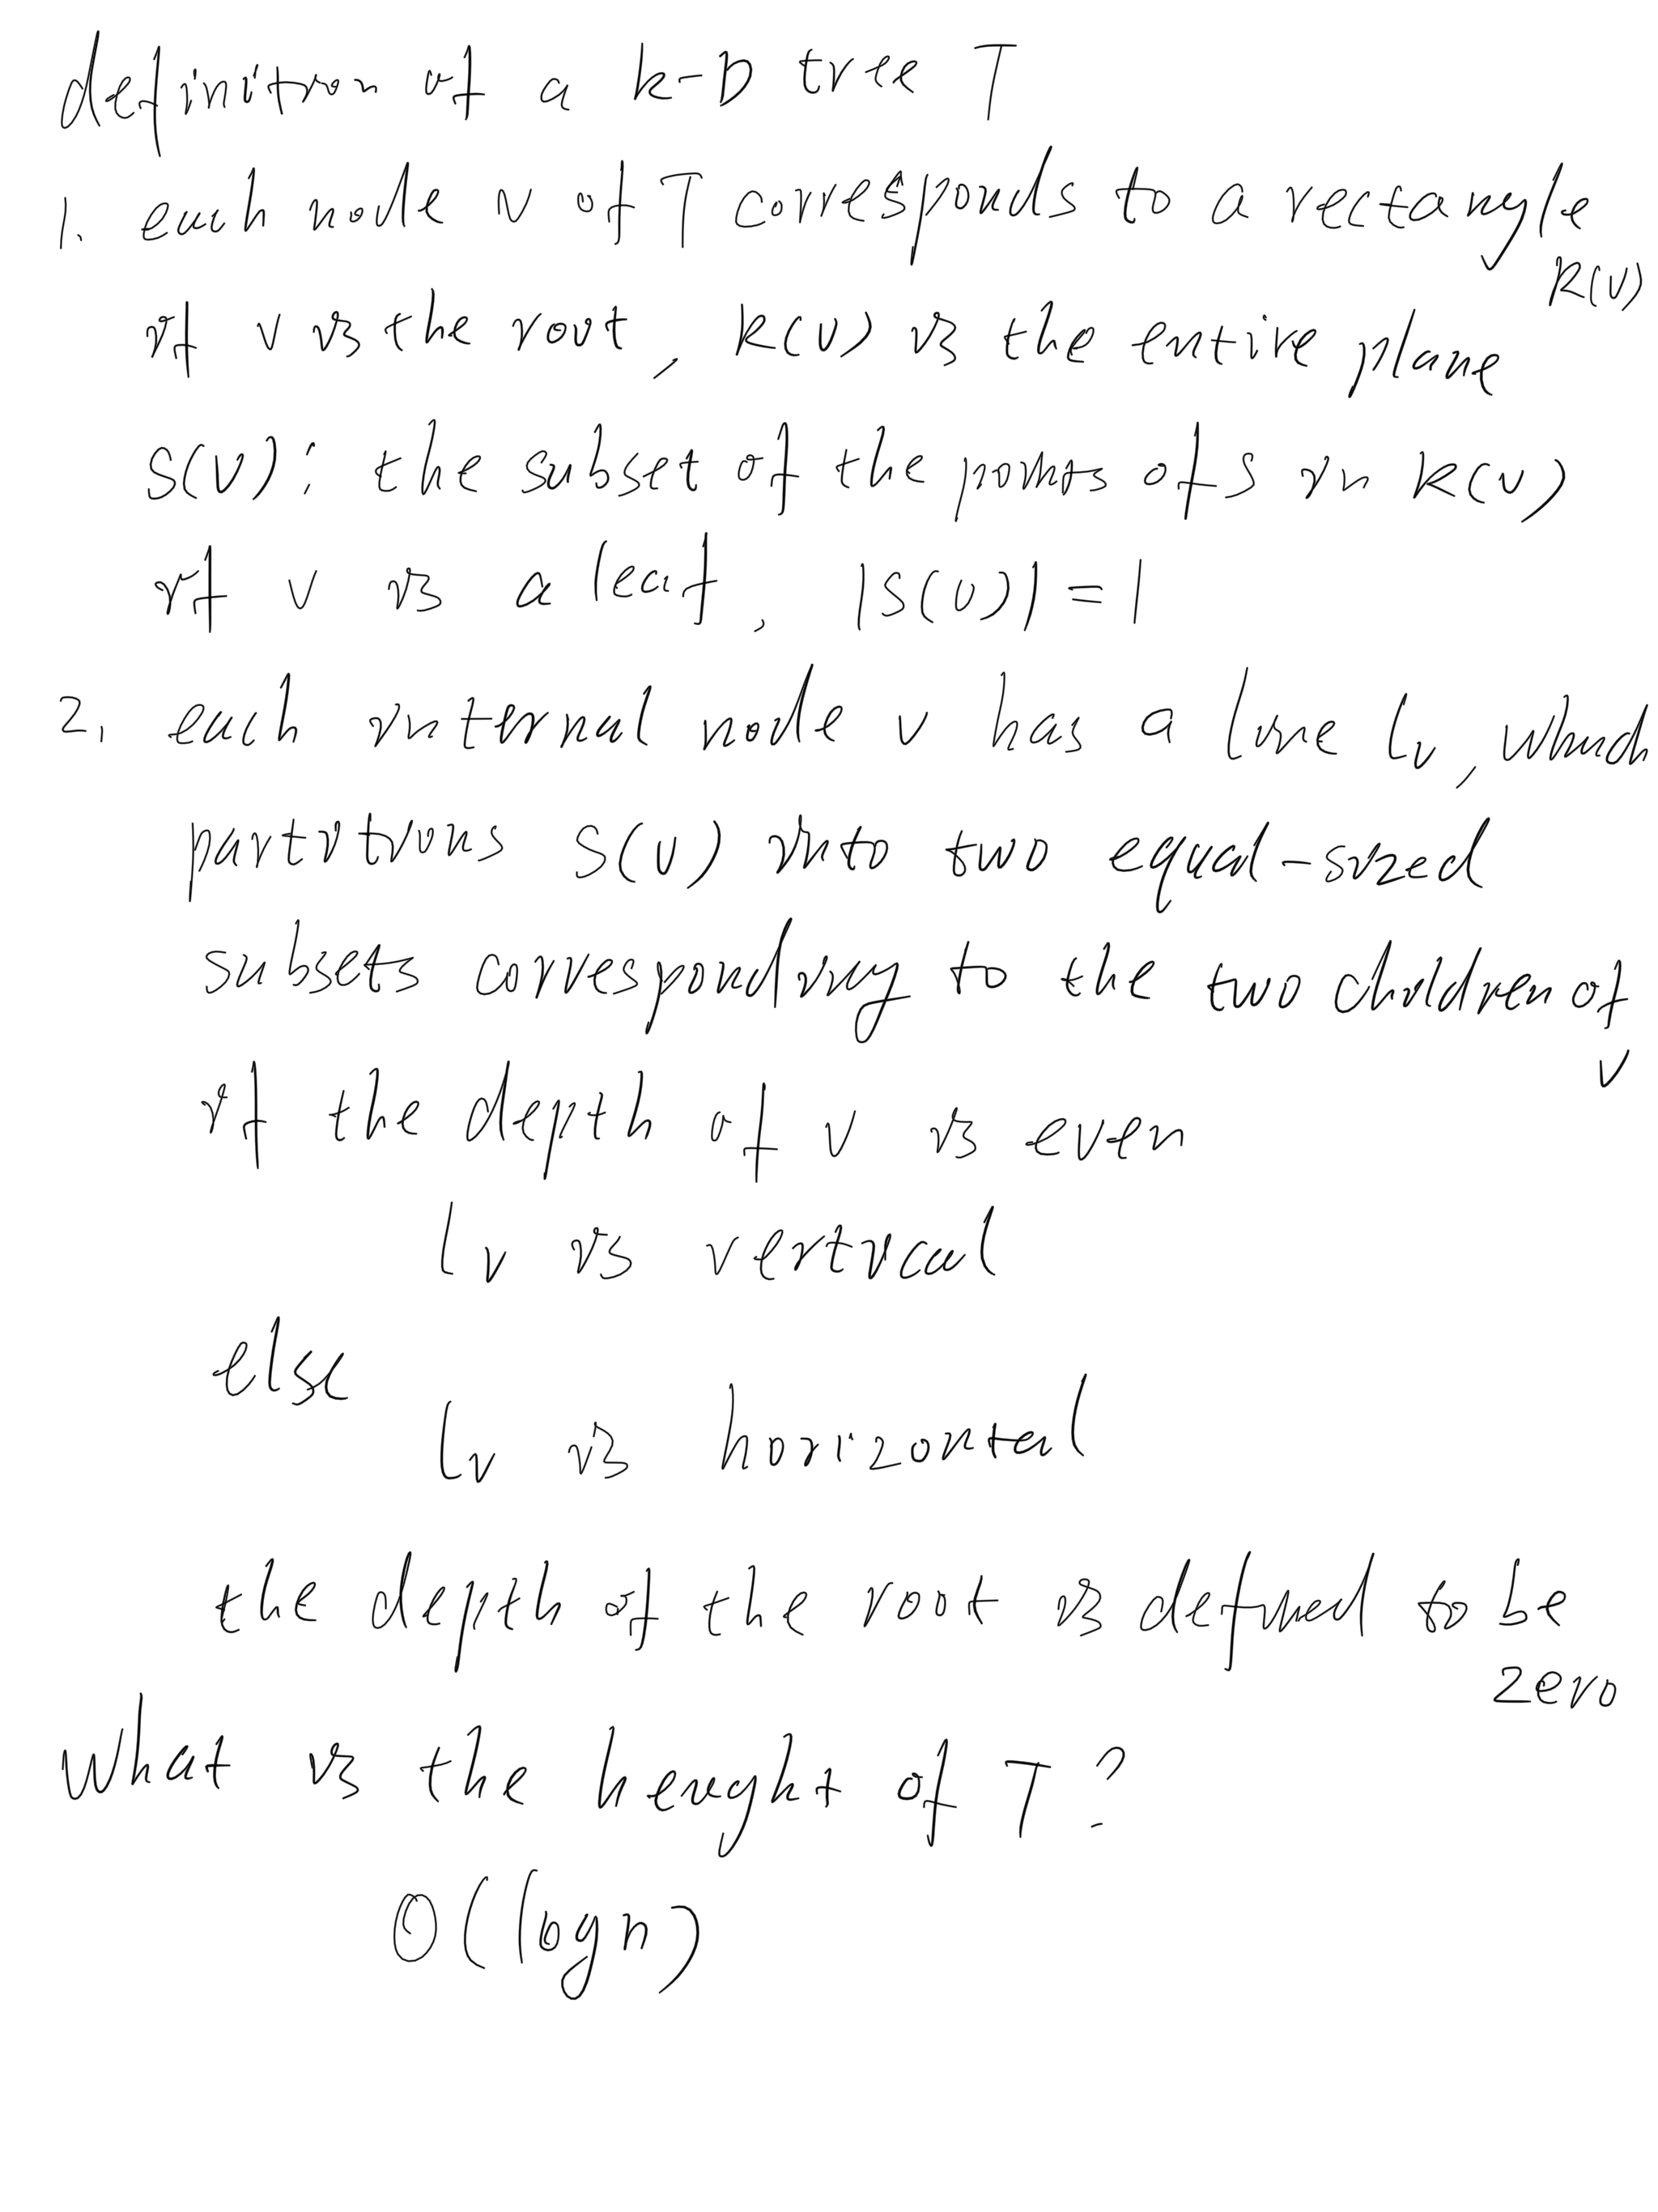 definition of a k-D tree T
1. each node v of T corresponds to a rectangle
R(v)
if v is the root, R(v) is the entire plane
S(v): the subset of the points of S in R(v)
if v is a leaf, |S(v)| = 1
2. each internal node v has a line lv, which
partitions S(v) into two equal-sized
subsets corresponding to the two children of
v
if the depth of v is even
lv is vertical
else
lv is horizontal
the depth of the root is defined to be
zero
What is the height of T?
O(logn)